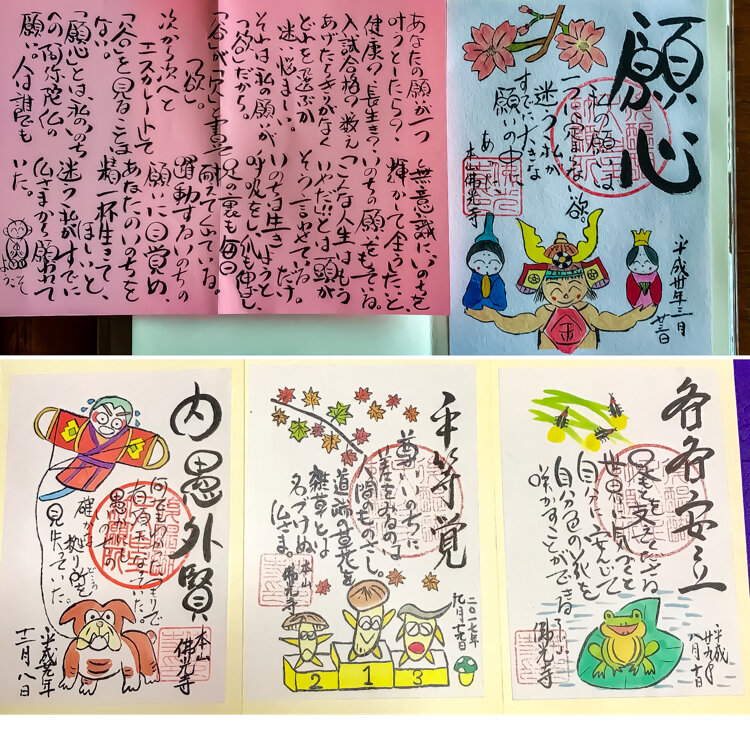 願心
私の願いは
一つに定まらない欲
迷う私が
すでに大きな
願いの中に
あった
本山佛光寺
平成卅年三月
廿三日
金
あなたの願が一つ
叶うとしたら？
健康？長生き？
入試合格？数え
あげたらきりがなく
どれを選ぶか
迷い悩ましい。
それは私の願いが
「欲」だから。
「谷」が「欠」と書いて
「欲」。
次から次へと
エスカレートして
「谷」を見ることは
ない。
「願心」とは、私のいのち
への阿弥陀仏の
願い。人は誰でも
無意識に、いのちを
輝かせて全うしたい、と
いのちの願をもっている。
「こんな人生はもう
いやだ!!」とは頭が
そう言わせているだけ。
いのちは生きようと
呼吸をし、爪も伸ばし、
足の裏も毎日
耐えてくれている。
躍動するいのちの
願いに目覚め、
あなたのいのちを
精一杯生きて
ほしい、と
迷う私がすでに
仏さまから願われて
いた。
ようこそ
各各安立
足もとを支えて下さる
世界に
自分に安んじて
自分色の花を
咲かすことができる
佛光寺
平成廿九年
八月十日
平等覚
尊いいのちに
差をみるのは
人間のものさし。
道端の草花を
雑草とは
名づけぬ
仏さま。
本山
佛光寺
二〇一七年
九月十九日
2 1 3
内愚外賢
何でもわかったつもりで
確かな拠り所を
見失っていた。
本山
佛光寺
十二月八日